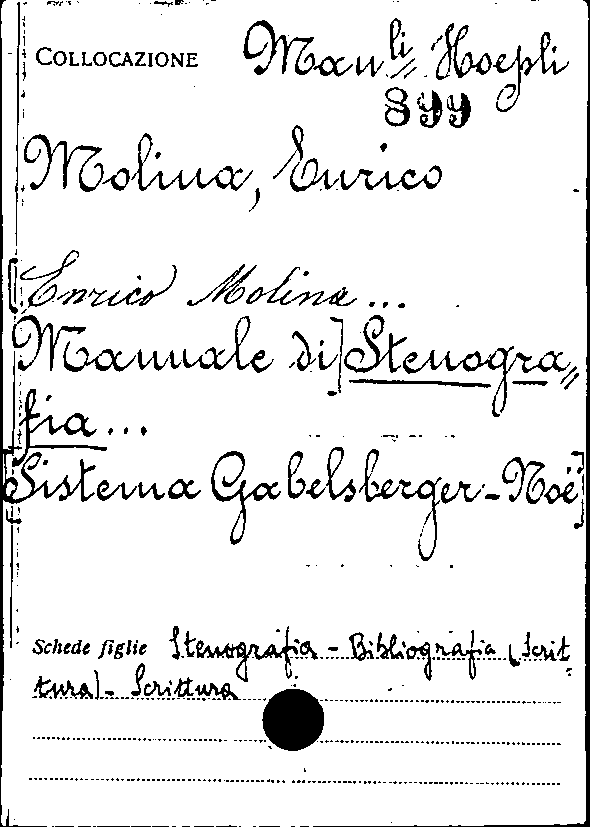 COLLOCAZIONE Man.li Hoepli
899
Molina, Enrico
[Enrico Molina...
Manuale di] Stenogra=
fia...
[Sistema Gabelsberger-Noë]
Schede figlie Stenografia - Bibliografia (Scrit
tura) - Scrittura